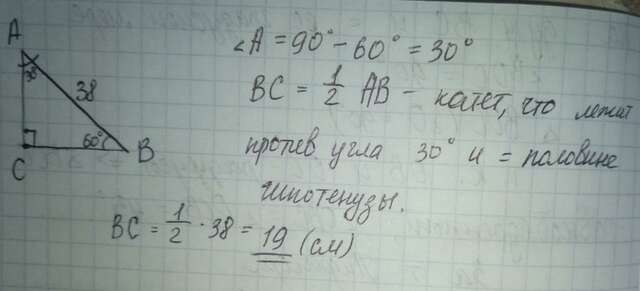 A
30°
38
60°
B
C
∠A = 90° - 60° = 30°
BC = 1/2 AB - катет, что лежит
против угла 30° и = половине
гипотенузы.
BC = 1/2 · 38 = 19 (см)